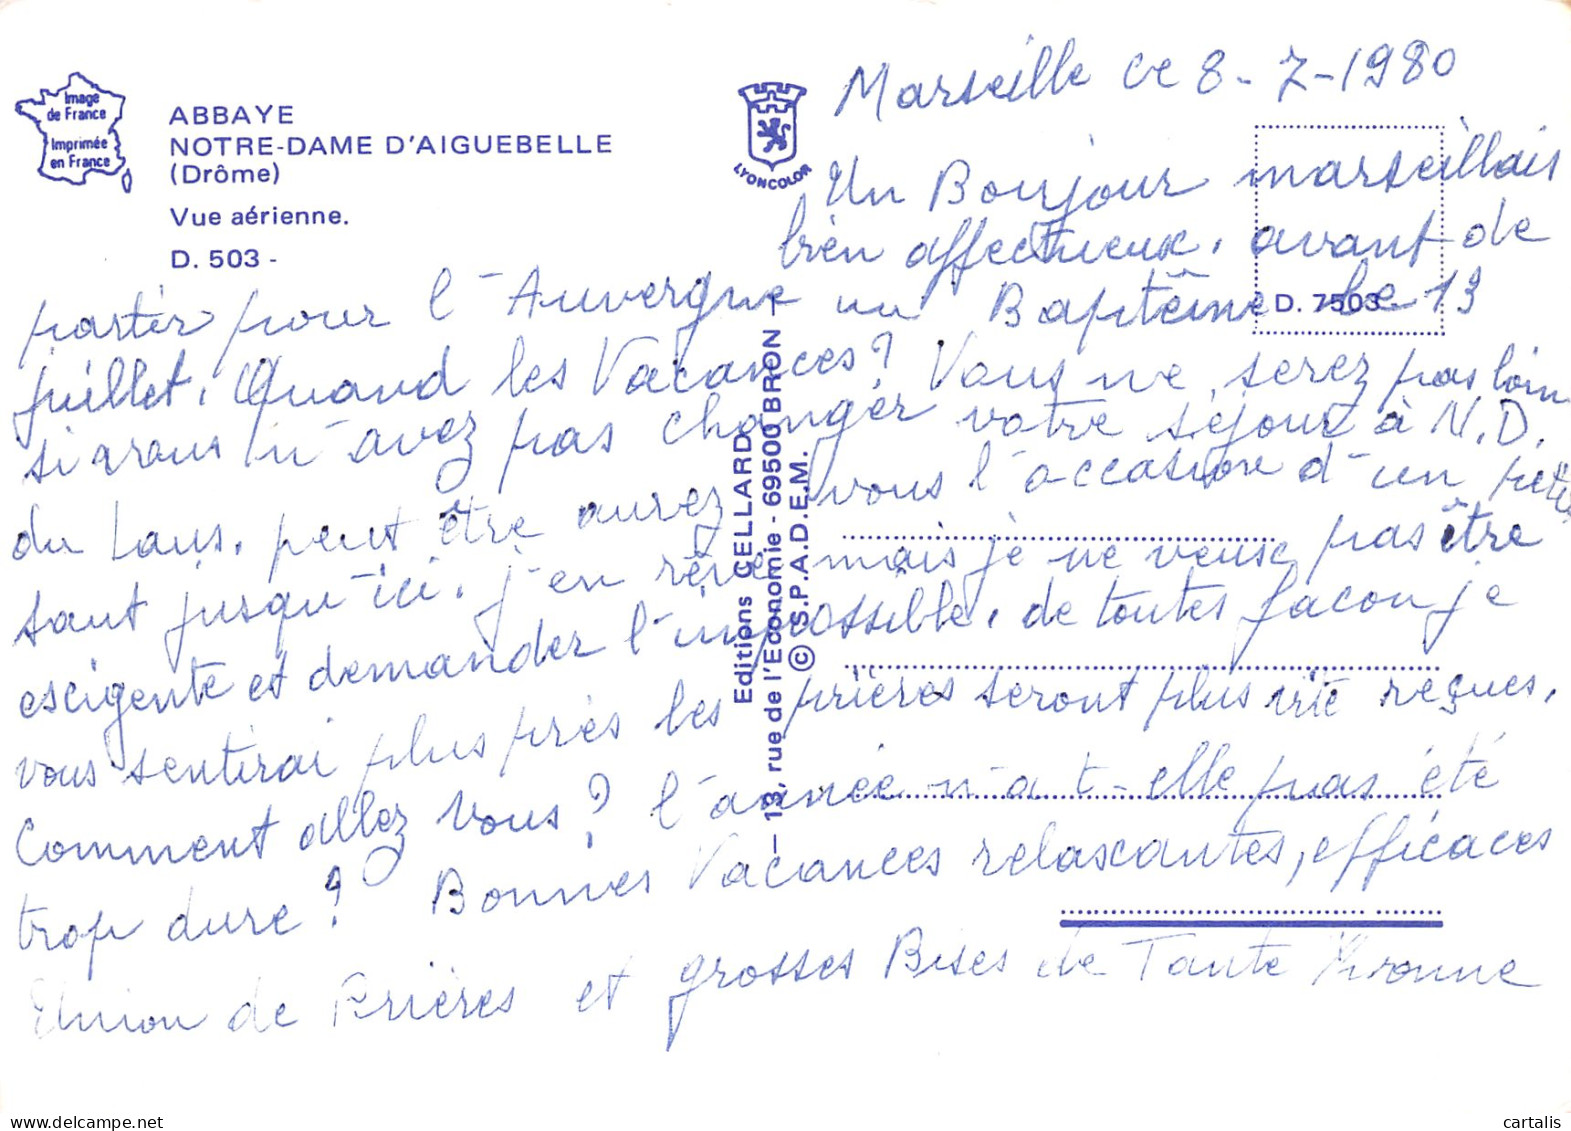 Image
de France
Imprimée
en France
ABBAYE
NOTRE-DAME D'AIGUEBELLE
(Drôme)
Vue aérienne.
D. 503 -
LYONCOLOR
D. 7503
Editions CELLARD
— 13, rue de l'Economie - 69500 BRON —
© S.P.A.D.E.M.
Marseille ce 8-7-1980
Un Bonjour marseillais
bien affectueux, avant de
partir pour l'Auvergne un Baptême le 13
juillet. Quand les Vacances? Vous ne serez pas loin
si vous n'avez pas changer votre séjour à N.D.
du Laus. peut être aurez vous l'occasion d'un petit
saut jusqu'ici. j'en rêve mais je ne veux pas être
exigente et demander l'impossible. de toutes facon je
vous sentirai plus près les prières seront plus vite reçues.
Comment allez vous? l'année n'a t-elle pas été
trop dure? Bonnes Vacances relaxantes, efficaces
Union de Prières et grosses Bises de Tante Yvonne
cartalis